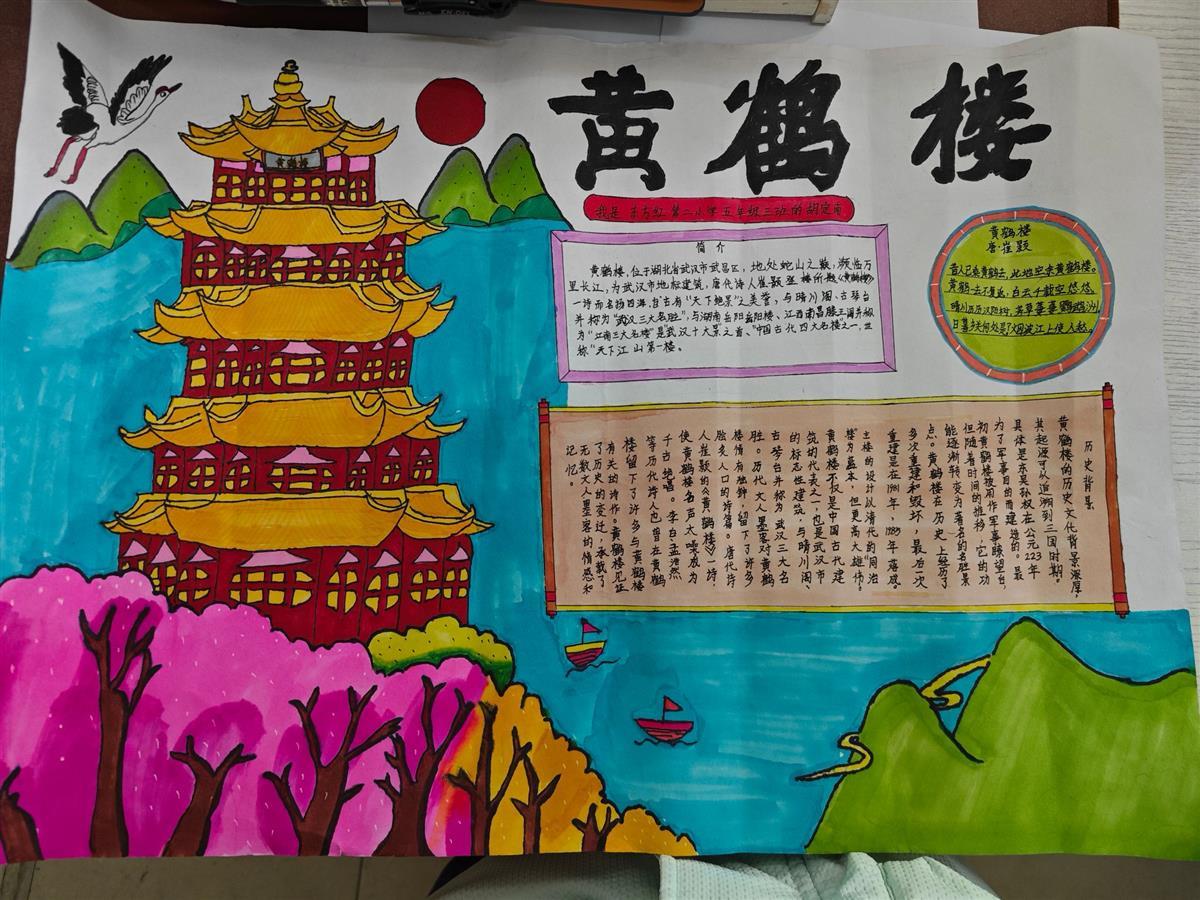 黄鹤楼
黄鹤楼
我是东方红第二小学五年级三班的胡定南
简介
黄鹤楼,位于湖北省武汉市武昌区,地处蛇山之巅,濒临万
里长江,为武汉市地标建筑,唐代诗人崔颢登楼所题《黄鹤楼》
一诗而名扬四海。自古有“天下绝景”之美誉,与晴川阁、古琴台
并称为“武汉三大名胜”,与湖南岳阳岳阳楼、江西南昌滕王阁并称
为“江南三大名楼”是武汉十大景之首、“中国古代四大名楼之一、世
称“天下江山第一楼。
黄鹤楼
唐·崔颢
昔人已乘黄鹤去,此地空余黄鹤楼。
黄鹤一去不复返,白云千载空悠悠。
晴川历历汉阳树,芳草萋萋鹦鹉洲。
日暮乡关何处是?烟波江上使人愁。
历史背景
黄鹤楼的历史文化背景深厚,
其起源可以追溯到三国时期。
具体是东吴孙权在公元223年
为了军事目的而建造的。最
初黄鹤楼被用作军事瞭望台,
但随着时间的推移,它的功
能逐渐转变为著名的名胜景
点。黄鹤楼在历史上经历了
多次重建和毁坏,最后一次
重建是在1981年,1985年落成。
主楼的设计以清代的“同治
楼”为蓝本,但更高大雄伟。
黄鹤楼不仅是中国古代建
筑的代表之一,也是武汉市
的标志性建筑,与晴川阁、
古琴台并称为武汉三大名
胜。历代文人墨客对黄鹤
楼情有独钟,留下了许多
脍炙人口的诗篇。唐代诗
人崔颢的《黄鹤楼》一诗
使黄鹤楼名声大噪成为
千古绝唱。李白孟浩然
等历代诗人也曾在黄鹤
楼留下了许多与黄鹤楼
有关的诗作。黄鹤楼见证
了历史的变迁,承载了
无数文人墨客的情感和
记忆。